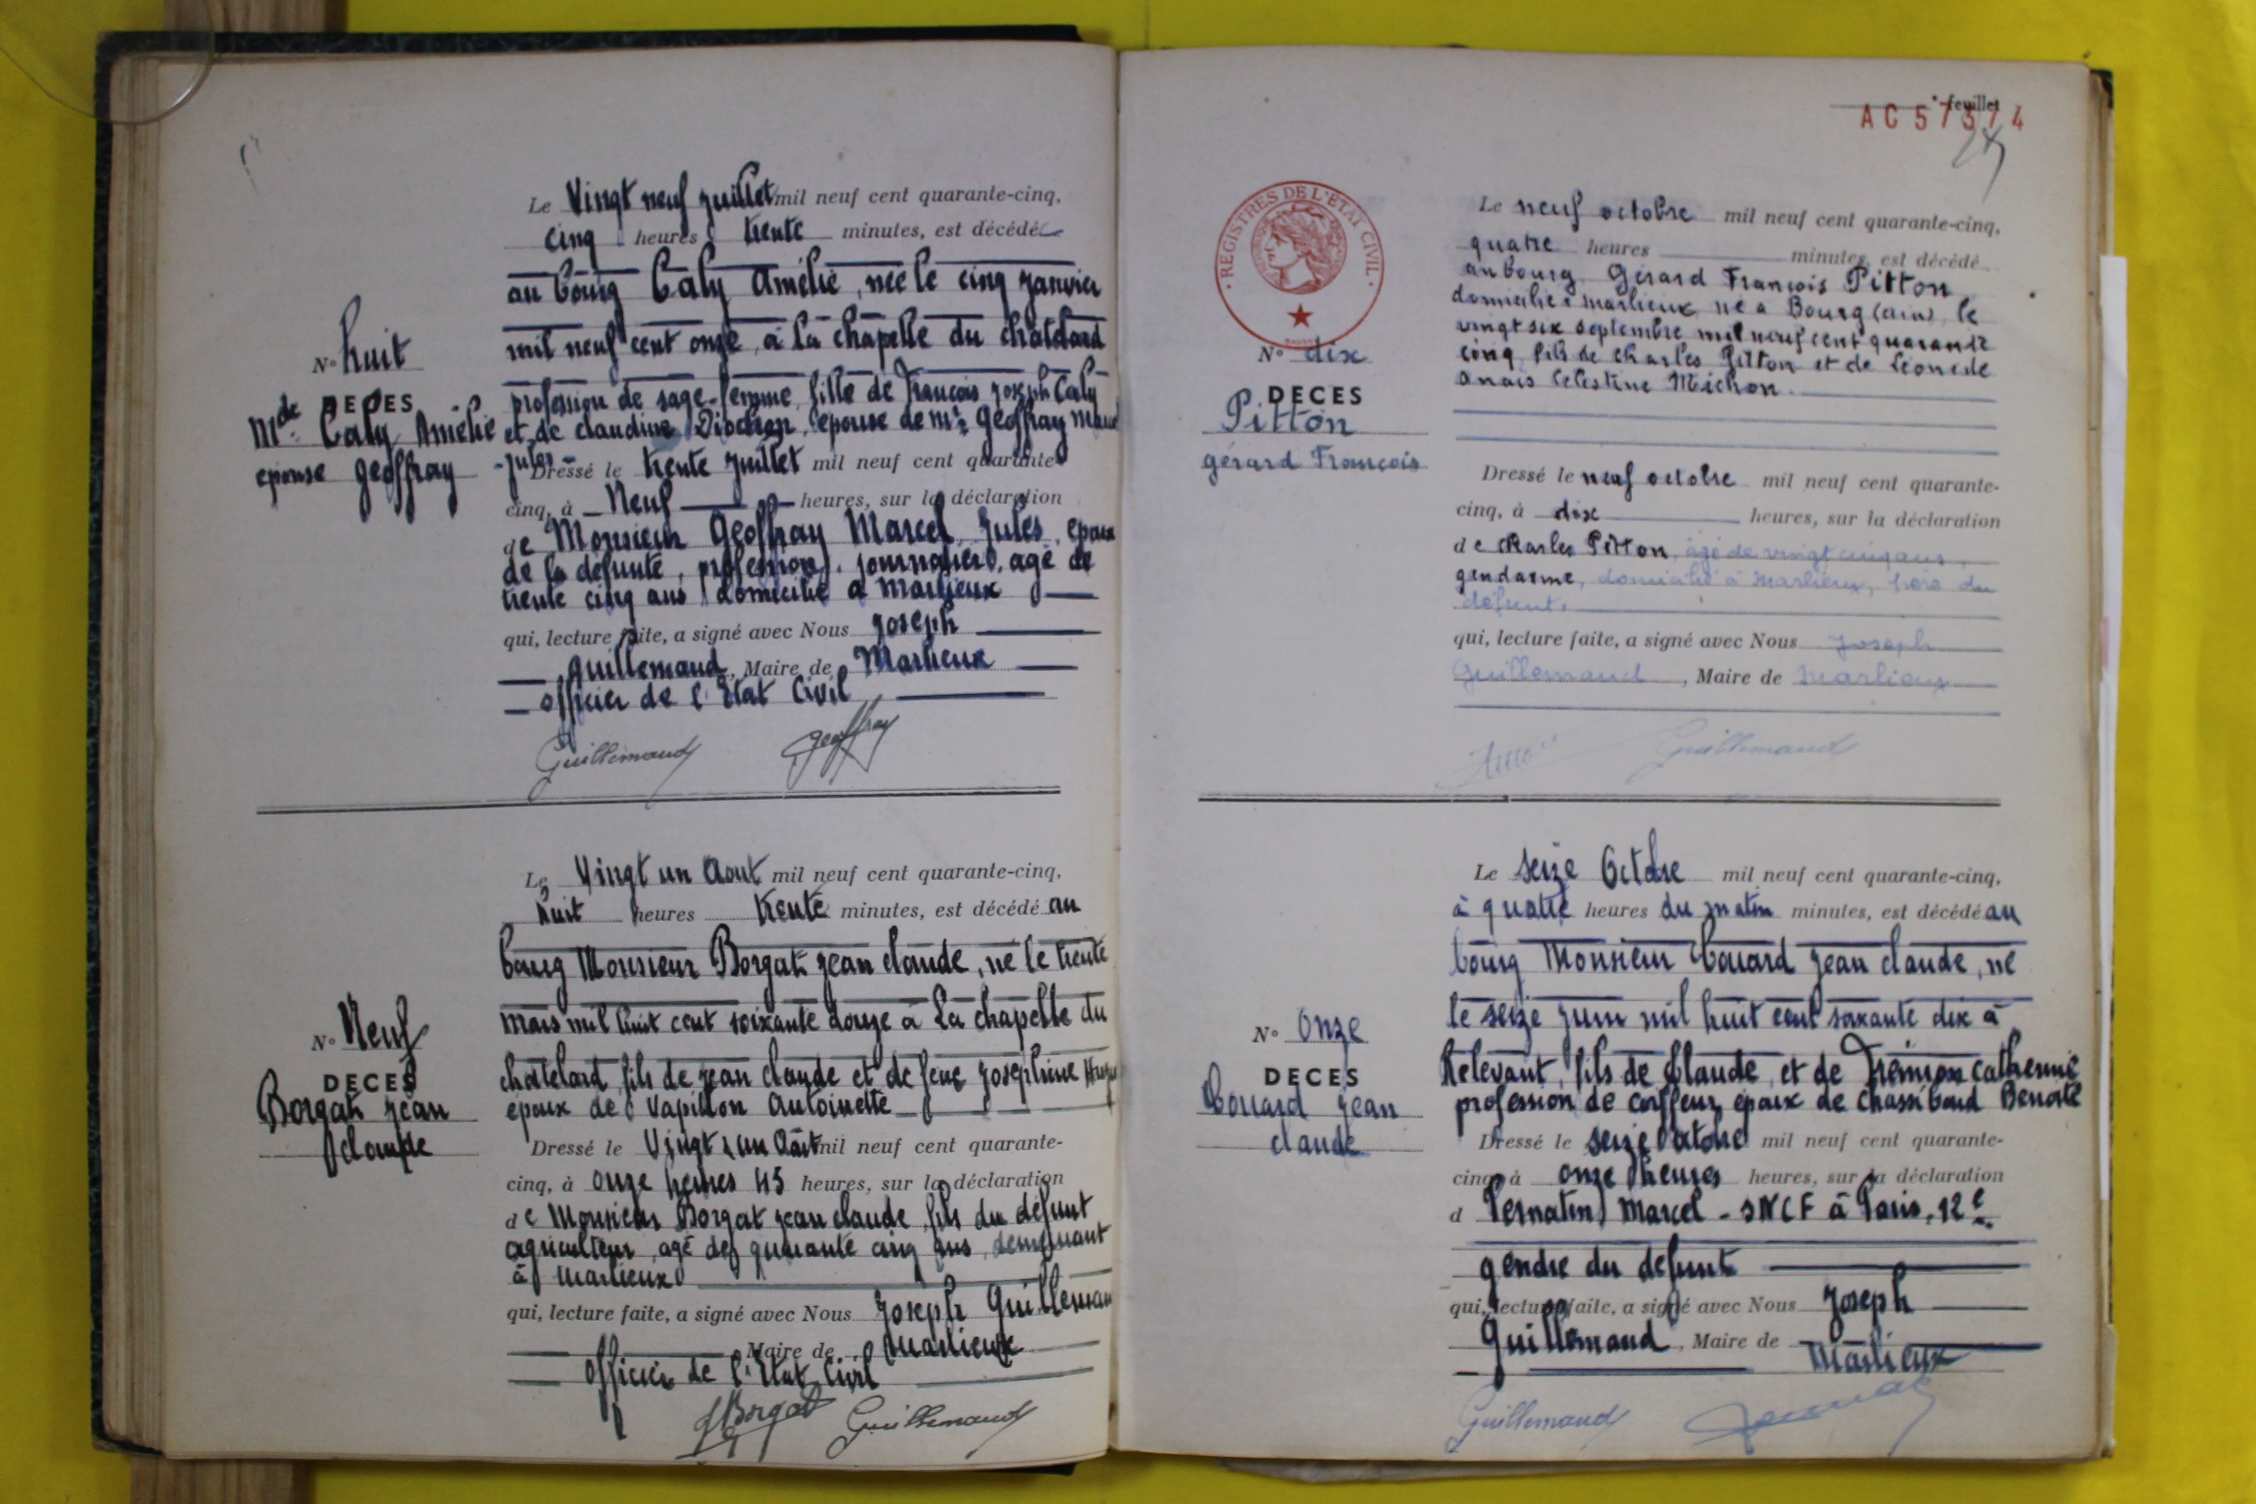 Le Vingt neuf juillet mil neuf cent quarante-cinq,
cinq heures trente minutes, est décédée
au bourg Caly Amélie, née le cinq janvier
mil neuf cent onze, à La chapelle du chatelard
N° huit
DECES
Mde Caly Amélie
épouse Geoffray
profession de sage-femme, fille de François Joseph Caly
et de claudine épouse de Mr Geoffray
Jules
Dressé le trente juillet mil neuf cent quarante-
cinq, à Neuf heures, sur la déclaration
de Monsieur Geoffray Marcel, Jules, epoux
de la défunte, profession journalier, agé de
trente cinq ans domicilié à Marlieux
qui, lecture faite, a signé avec Nous Joseph
Guillemaud, Maire de Marlieux
officier de l'Etat Civil
Guillemaud Geoffray
Le Vingt un Aout mil neuf cent quarante-cinq,
huit heures trente minutes, est décédé au
bourg Monsieur Borgat jean claude, né le trente
mars mil huit cent soixante douze à La chapelle du
N° Neuf
DECES
Borgat jean
claude
chatelard, fils de jean claude et de feue Joséphine
epoux de Vapillon Antoinette
Dressé le Vingt un Août mil neuf cent quarante-
cinq, à onze heures 45 heures, sur la déclaration
de Monsieur Borgat jean claude, fils du défunt
agriculteur, agé de quarante cinq ans, demeurant
à Marlieux
qui, lecture faite, a signé avec Nous Joseph Guillemau
Maire de Marlieux
officier de l'Etat Civil
Borgat Guillemaud
feuillet
AC57374
REGISTRES DE L'ETAT CIVIL
Le neuf octobre mil neuf cent quarante-cinq,
quatre heures minutes, est décédé
au bourg Gérard François Pitton
domicilié à marlieux, né à Bourg (ain), le
vingt six septembre mil neuf cent quarante
cinq, fils de Charles Pitton et de Léone de
Anaïs Celestine Michon.
N° dix
DECES
Pitton
gérard François
Dressé le neuf octobre mil neuf cent quarante-
cinq, à dix heures, sur la déclaration
de Charles Pitton, âgé de vingt cinq ans,
gendarme, domicilié à Marlieux, père du
défunt.
qui, lecture faite, a signé avec Nous Joseph
Guillemaud, Maire de Marlieux
Guillemaud
Le seize Octobre mil neuf cent quarante-cinq,
à quatre heures du matin minutes, est décédé au
bourg Monsieur Couard jean claude, né
le seize juin mil huit cent soixante dix à
N° Onze
DECES
Couard jean
claude
Relevant, fils de Claude, et de Catherine
profession de coiffeur, epoux de Benoite
Dressé le seize octobre mil neuf cent quarante-
cinq, à onze heures heures, sur la déclaration
d Marcel - SNCF à Paris, 12e
gendre du defunt
qui, lecture faite, a signé avec Nous Joseph
Guillemaud, Maire de Marlieux
Guillemaud